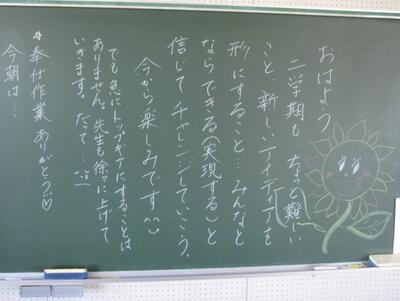 おはよう。
二学期も、ちょっと難しい
こと、新しいアイデアを
形にすること…みんなと
ならできる(実現する)と
信じてチャレンジしていこう。
今から楽しみです(^^)
でも急にトップギアにすることは
ありません。先生も徐々に上げて
いきます。だって…
☆奉仕作業ありがとう♡
今朝は…